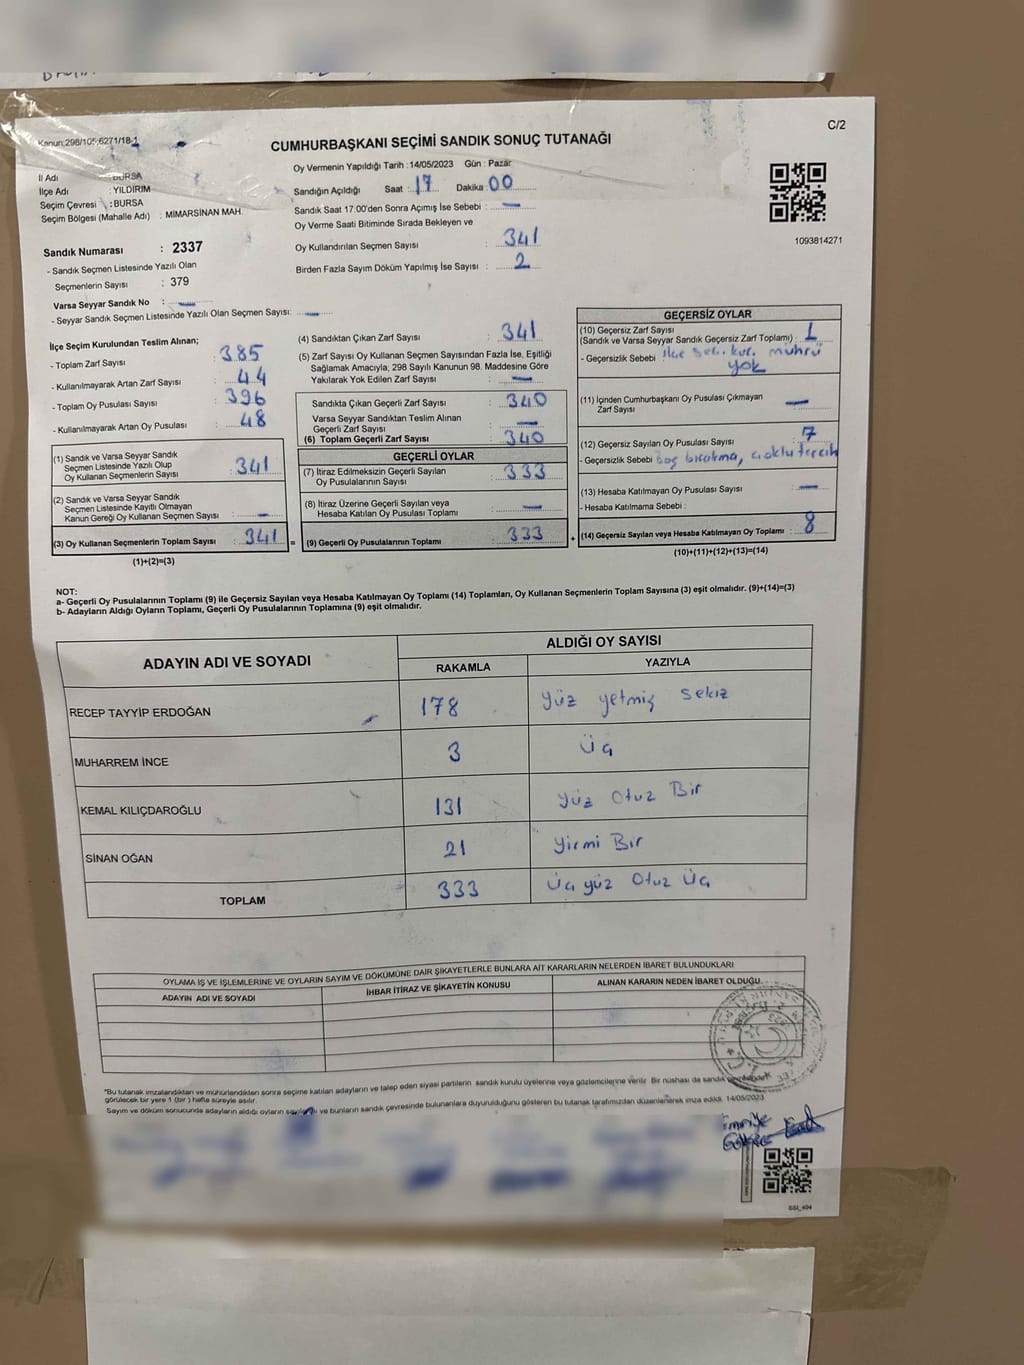 Kanun:298/105;6271/18-1
C/2
CUMHURBAŞKANI SEÇİMİ SANDIK SONUÇ TUTANAĞI
İl Adı : BURSA
İlçe Adı : YILDIRIM
Seçim Çevresi : BURSA
Seçim Bölgesi (Mahalle Adı) : MİMARSİNAN MAH.
Oy Vermenin Yapıldığı Tarih : 14/05/2023 Gün : Pazar
Sandığın Açıldığı Saat : 17 Dakika : 00
Sandık Saat 17:00'den Sonra Açımış İse Sebebi : —
Oy Verme Saati Bitiminde Sırada Bekleyen ve
Oy Kullandırılan Seçmen Sayısı : 341
Birden Fazla Sayım Döküm Yapılmış İse Sayısı : 2
1093814271
Sandık Numarası : 2337
- Sandık Seçmen Listesinde Yazılı Olan
Seçmenlerin Sayısı : 379
Varsa Seyyar Sandık No : —
- Seyyar Sandık Seçmen Listesinde Yazılı Olan Seçmen Sayısı: —
İlçe Seçim Kurulundan Teslim Alınan;
- Toplam Zarf Sayısı : 385
- Kullanılmayarak Artan Zarf Sayısı : 44
- Toplam Oy Pusulası Sayısı : 396
- Kullanılmayarak Artan Oy Pusulası : 48
(1) Sandık ve Varsa Seyyar Sandık
Seçmen Listesinde Yazılı Olup
Oy Kullanan Seçmenlerin Sayısı : 341
(2) Sandık ve Varsa Seyyar Sandık
Seçmen Listesinde Kayıtlı Olmayan
Kanun Gereği Oy Kullanan Seçmen Sayısı : —
(3) Oy Kullanan Seçmenlerin Toplam Sayısı : 341 =
(1)+(2)=(3)
(4) Sandıktan Çıkan Zarf Sayısı : 341
(5) Zarf Sayısı Oy Kullanan Seçmen Sayısından Fazla İse, Eşitliği
Sağlamak Amacıyla, 298 Sayılı Kanunun 98. Maddesine Göre
Yakılarak Yok Edilen Zarf Sayısı : —
Sandıkta Çıkan Geçerli Zarf Sayısı : 340
Varsa Seyyar Sandıktan Teslim Alınan
Geçerli Zarf Sayısı : —
(6) Toplam Geçerli Zarf Sayısı : 340
GEÇERLİ OYLAR
(7) İtiraz Edilmeksizin Geçerli Sayılan
Oy Pusulalarının Sayısı : 333
(8) İtiraz Üzerine Geçerli Sayılan veya
Hesaba Katılan Oy Pusulası Toplamı : —
(9) Geçerli Oy Pusulalarının Toplamı : 333 +
GEÇERSİZ OYLAR
(10) Geçersiz Zarf Sayısı
(Sandık ve Varsa Seyyar Sandık Geçersiz Zarf Toplamı) : 1
- Geçersizlik Sebebi : ilçe seç. kur. mührü
yok
(11) İçinden Cumhurbaşkanı Oy Pusulası Çıkmayan
Zarf Sayısı : —
(12) Geçersiz Sayılan Oy Pusulası Sayısı : 7
- Geçersizlik Sebebi : boş bırakma, çoklu tercih
(13) Hesaba Katılmayan Oy Pusulası Sayısı : —
- Hesaba Katılmama Sebebi :
(14) Geçersiz Sayılan veya Hesaba Katılmayan Oy Toplamı : 8
(10)+(11)+(12)+(13)=(14)
NOT:
a- Geçerli Oy Pusulalarının Toplamı (9) ile Geçersiz Sayılan veya Hesaba Katılmayan Oy Toplamı (14) Toplamları, Oy Kullanan Seçmenlerin Toplam Sayısına (3) eşit olmalıdır. (9)+(14)=(3)
b- Adayların Aldığı Oyların Toplamı, Geçerli Oy Pusulalarının Toplamına (9) eşit olmalıdır.
ADAYIN ADI VE SOYADI
ALDIĞI OY SAYISI
RAKAMLA YAZIYLA
RECEP TAYYİP ERDOĞAN 178 yüz yetmiş sekiz
MUHARREM İNCE 3 Üç
KEMAL KILIÇDAROĞLU 131 yüz Otuz Bir
SİNAN OĞAN 21 yirmi Bir
TOPLAM 333 Üç yüz Otuz Üç
OYLAMA İŞ VE İŞLEMLERİNE VE OYLARIN SAYIM VE DÖKÜMÜNE DAİR ŞİKAYETLERLE BUNLARA AİT KARARLARIN NELERDEN İBARET BULUNDUKLARI
ADAYIN ADI VE SOYADI İHBAR İTİRAZ VE ŞİKAYETİN KONUSU ALINAN KARARIN NEDEN İBARET OLDUĞU
*Bu tutanak imzalandıktan ve mühürlendikten sonra seçime katılan adayların ve talep eden siyasi partilerin sandık kurulu üyelerine veya gözlemcilerine verilir. Bir nüshası da sandık
görülecek bir yere 1 (bir) hafta süreyle asılır.
Sayım ve döküm sonucunda adayların aldığı oyların ve bunların sandık çevresinde bulunanlara duyurulduğunu gösteren bu tutanak tarafımızdan düzenlenerek imza edildi. 14/05/2023